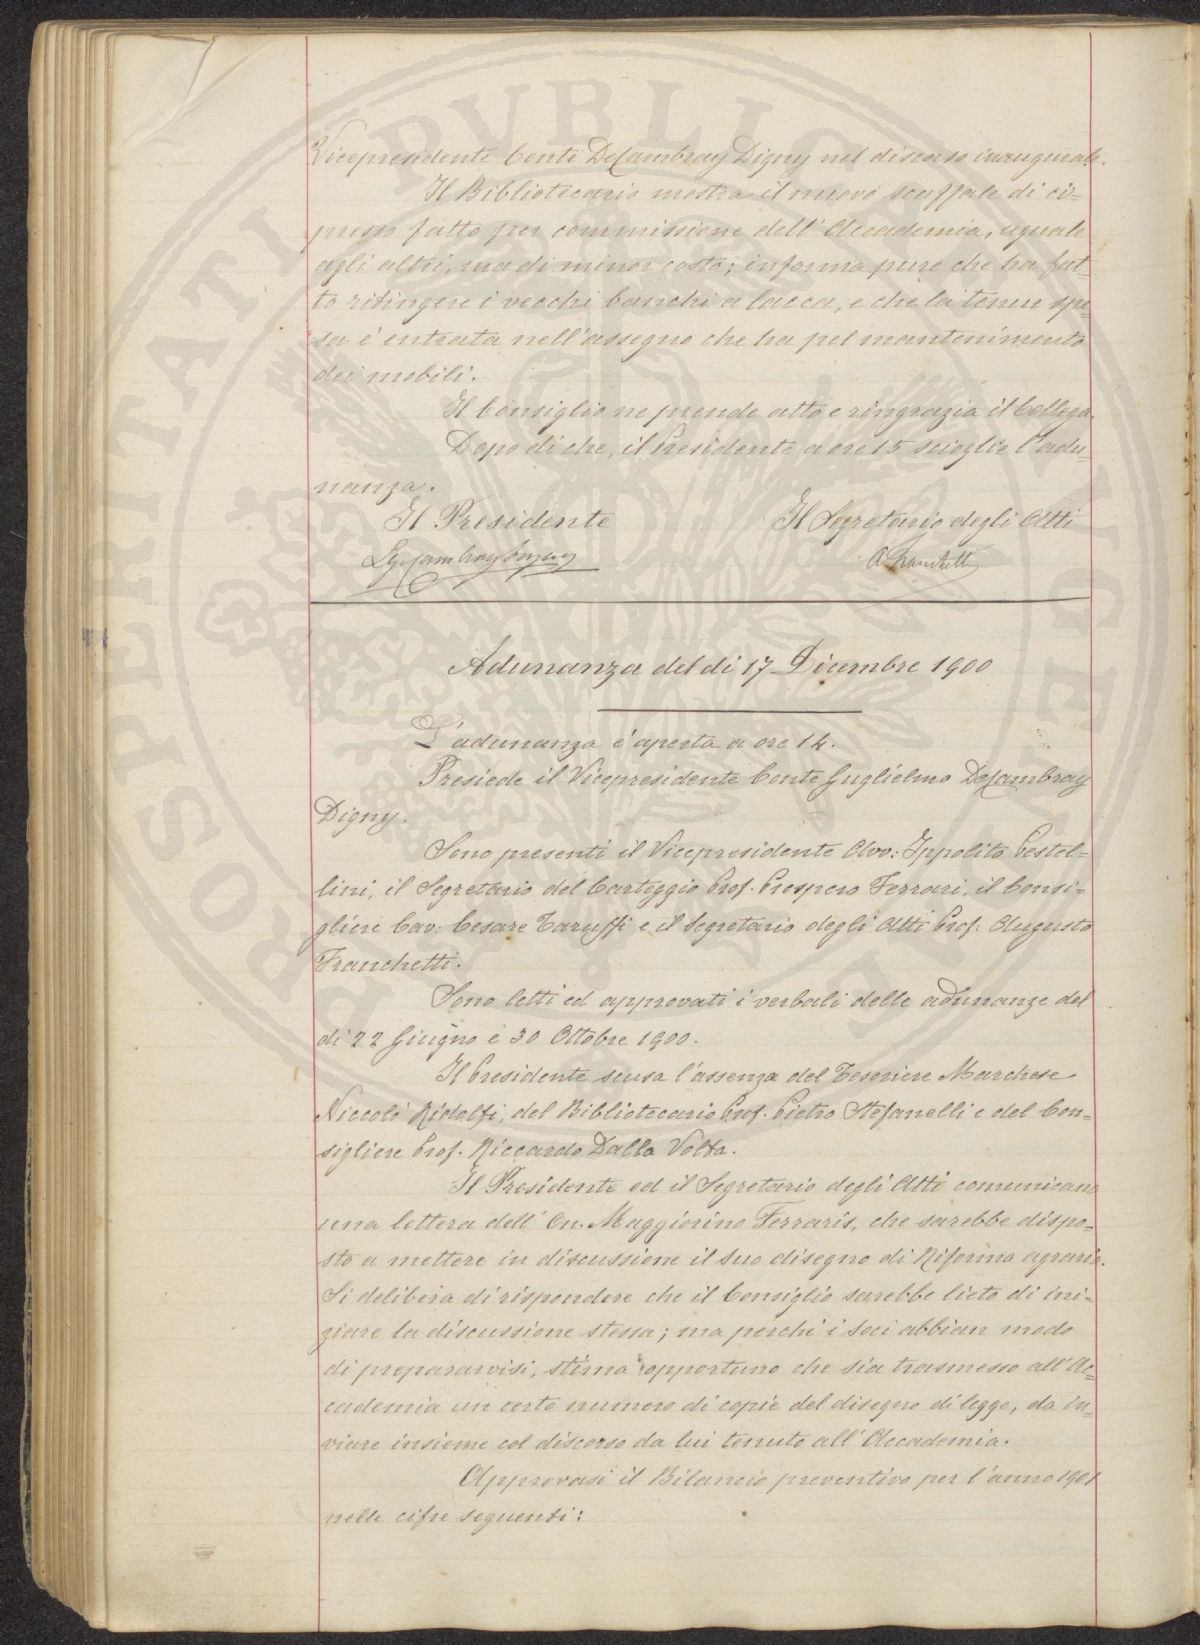 Vicepresidente Conte DeCambray Digny nel discorso inaugurale.
Il Bibliotecario mostra il nuovo scaffale di ci-
presso fatto per commissione dell'Accademia, uguale
agli altri, ma di minor costo; informa pure che ha fat-
to ritingere i vecchi banchi a lacca, e che la tenue spe-
sa è entrata nell'assegno che ha pel mantenimento
dei mobili.
Il Consiglio ne prende atto e ringrazia il Collega.
Dopo di che, il Presidente a ore 15 scioglie l'adu-
nanza.
Il Presidente Il Segretario degli Atti
DeCambray Digny A Franchetti
Adunanza del di 17 Dicembre 1900
L'adunanza è aperta a ore 14.
Presiede il Vicepresidente Conte Guglielmo DeCambray
Digny.
Sono presenti il Vicepresidente Avv: Ippolito Pestel-
lini, il Segretario del Carteggio Prof. Prospero Ferrari, il Consi-
gliere Cav: Cesare Taruffi e il Segretario degli Atti Prof: Augusto
Franchetti.
Sono letti ed approvati i verbali delle adunanze del
di 22 Giugno e 30 Ottobre 1900.
Il Presidente scusa l'assenza del Tesoriere Marchese
Niccolò Ridolfi, del Bibliotecario Prof. Pietro Stefanelli e del Con-
sigliere Prof. Riccardo Dalla Volta.
Il Presidente ed il Segretario degli Atti comunicano
una lettera dell'On. Maggiorino Ferraris, che sarebbe dispo-
sto a mettere in discussione il suo disegno di Riforma agraria.
Si delibera di rispondere che il Consiglio sarebbe lieto di ini-
ziare la discussione stessa; ma perchè i Soci abbian modo
di prepararvisi, stima opportuno che sia trasmesso all'Ac-
cademia un certo numero di copie del disegno di legge, da in-
viare insieme col discorso da lui tenuto all'Accademia.
Approvasi il Bilancio preventivo per l'anno 1901
nelle cifre seguenti:
PROSPERITATI PVBLICAE AVGENDAE